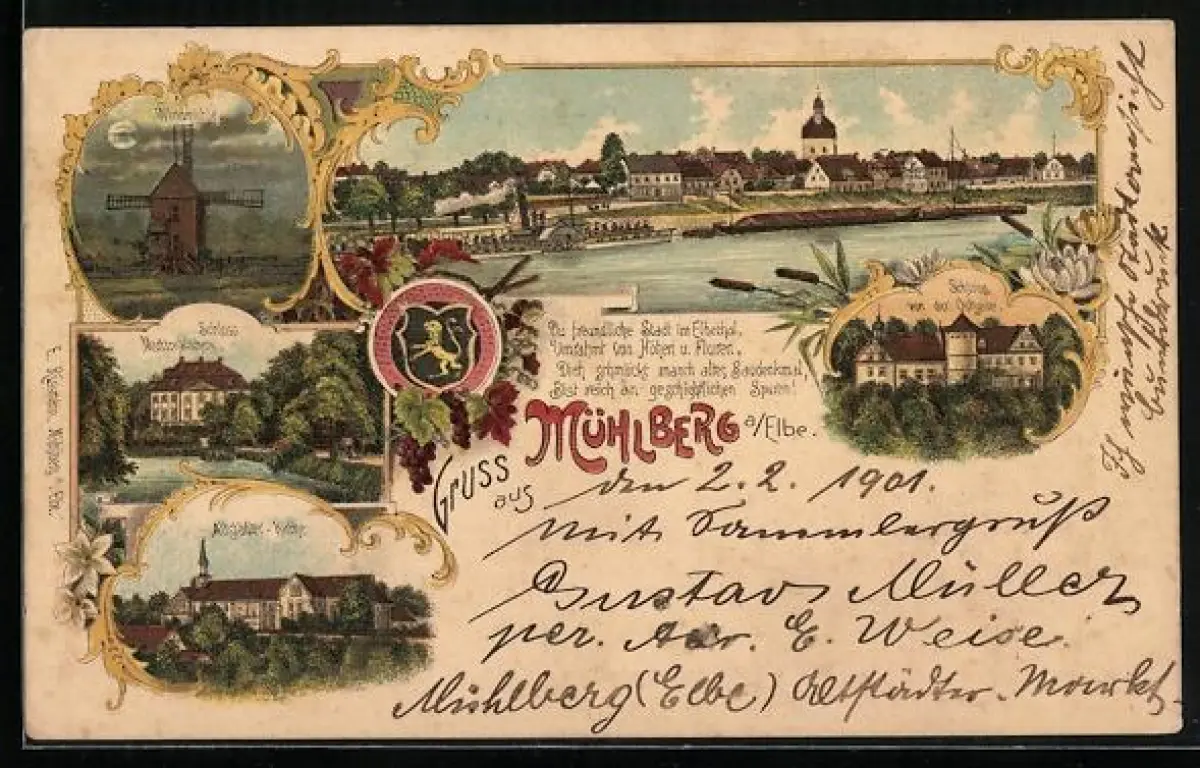 Schloss
Schloss
von der
Du freundliche Stadt im Elbethal,
Umrahmt von Höhen u. Fluren,
Dich schmückt manch altes Baudenkmal,
Bist reich an geschichtlichen Spuren!
Gruss aus
MÜHLBERG a/Elbe.
den 2. 2. 1901.
mit Sammlergruß
Gustav Müller
per. Adr. E. Weise.
Mühlberg (Elbe) Altstädter. Markt.
Ich wünsche Stadtansicht
Buntdruck